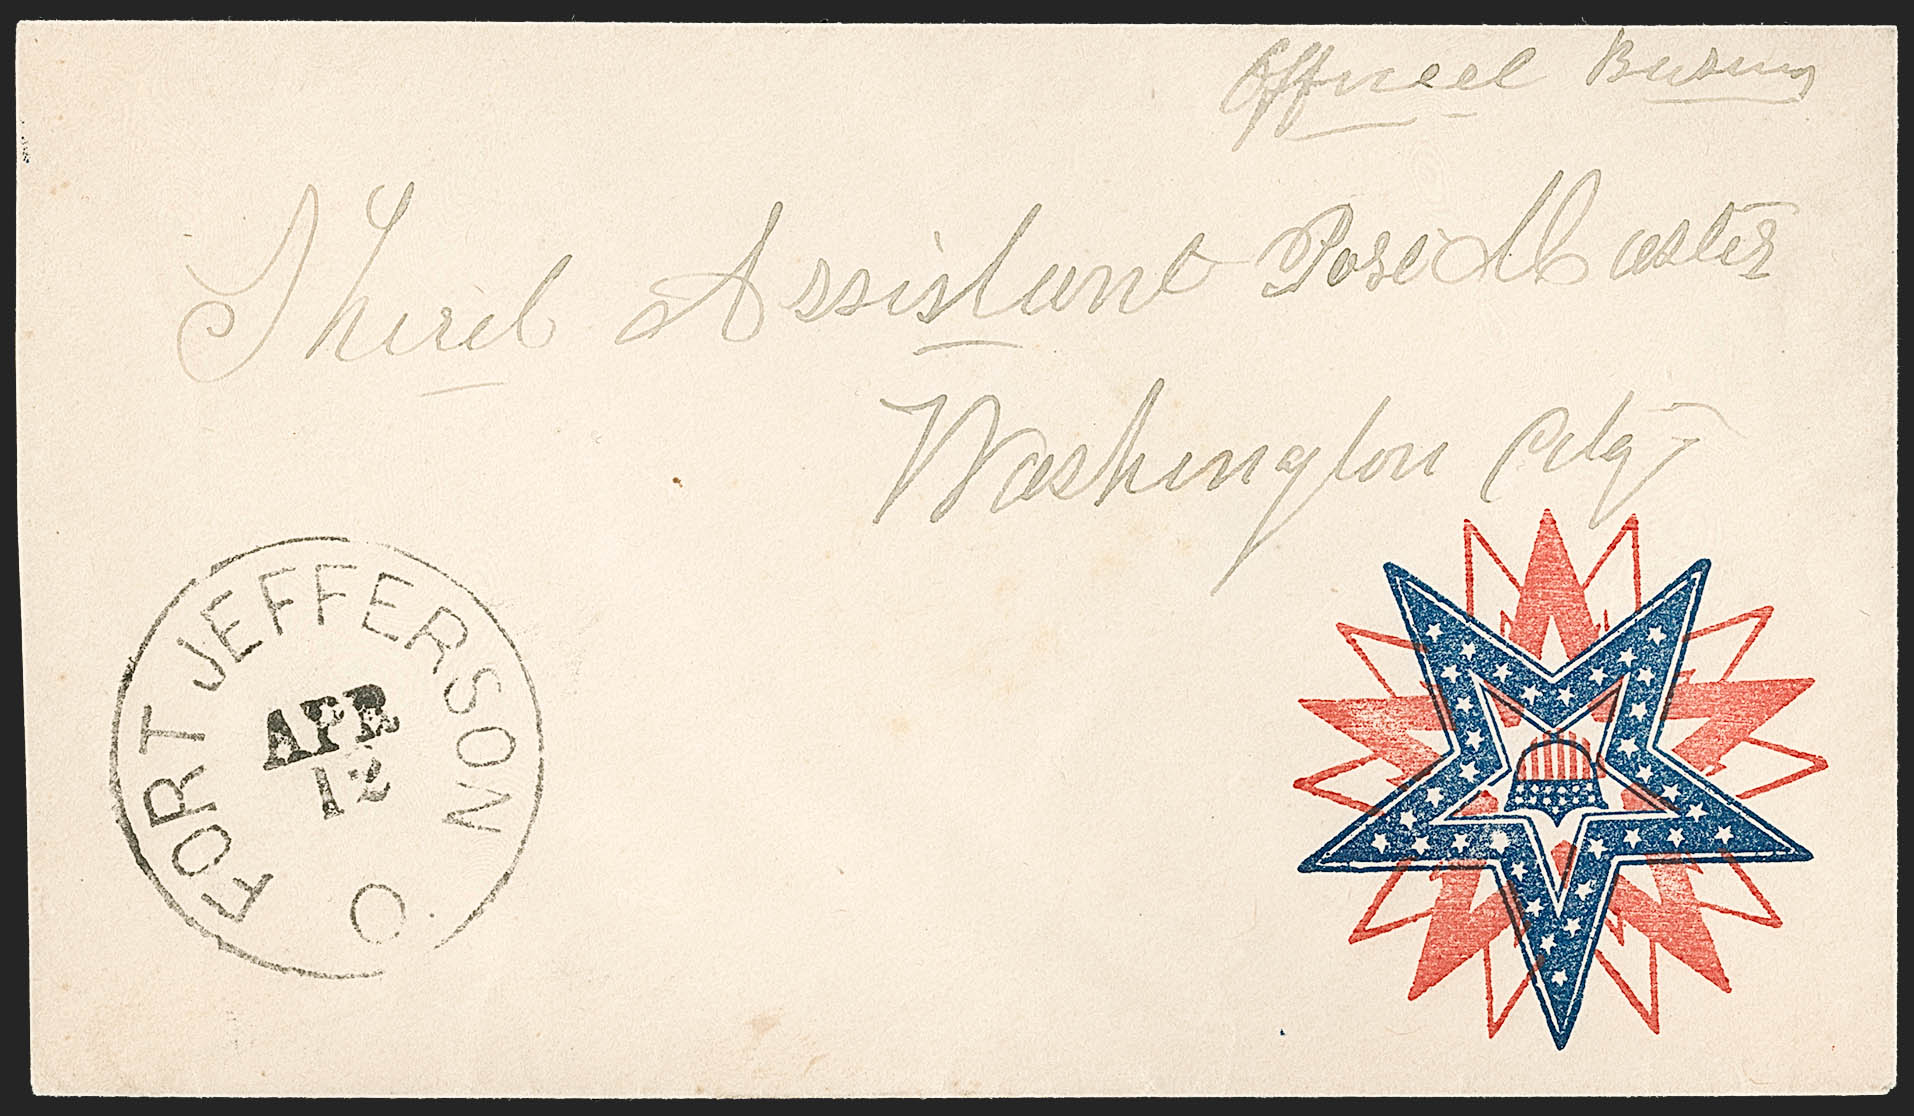 Official Business
Third Assistant Post Master
Washington City
FORT JEFFERSON O
APR
12